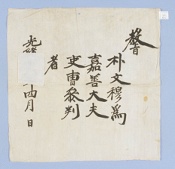 朴文穆爲
嘉善大夫
吏曹參判
者
光緖
四月 日